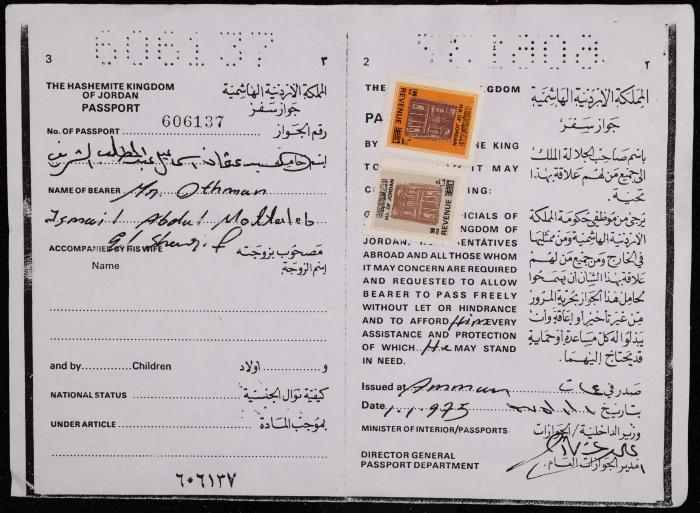 606137 ٣
3
THE HASHEMITE KINGDOM
OF JORDAN
PASSPORT
المملكة الأردنية الهاشمية
جواز سفر
606137
No. OF PASSPORT رقم الجواز
اسم حامله عثمان اسماعيل عبد المطلب الشريف
NAME OF BEARER Mr. Othman
Ismail Abdul Mottaleb
El Sharif
ACCOMPANIED BY HIS WIFE مصحوب بزوجته
Name اسم الزوجة
and by Children و أولاد
NATIONAL STATUS كيفية نوال الجنسية
UNDER ARTICLE بموجب المادة
٦٠٦١٣٧
2 ٢
REVENUE
HK. OF JORDAN
HK. OF JORDAN
REVENUE
THE KINGDOM
PA
BY THE KING
TO IT MAY
CO NG:
G ICIALS OF
NGDOM OF
JORDAN, ENTATIVES
ABROAD AND ALL THOSE WHOM
IT MAY CONCERN ARE REQUIRED
AND REQUESTED TO ALLOW
BEARER TO PASS FREELY
WITHOUT LET OR HINDRANCE
AND TO AFFORD Him EVERY
ASSISTANCE AND PROTECTION
OF WHICH He MAY STAND
IN NEED.
المملكة الأردنية الهاشمية
جواز سفر
باسم صاحب الجلالة الملك
الى جميع من لهم علاقة بهذا
تحية.
يرجى من موظفي حكومة المملكة
الأردنية الهاشمية ومن ممثليها
في الخارج ومن جميع من لهم
علاقة بهذا الشأن أن يسمحوا
لحامل هذا الجواز بحرية المرور
من غير تأخير أو إعاقة وأن
يبذلوا له كل مساعدة أو حماية
قد يحتاج إليهما.
Issued at Amman صدر في
Date 1.1.975 بتاريخ
MINISTER OF INTERIOR/PASSPORTS وزير الداخلية/الجوازات
DIRECTOR GENERAL
PASSPORT DEPARTMENT
مدير الجوازات العام.